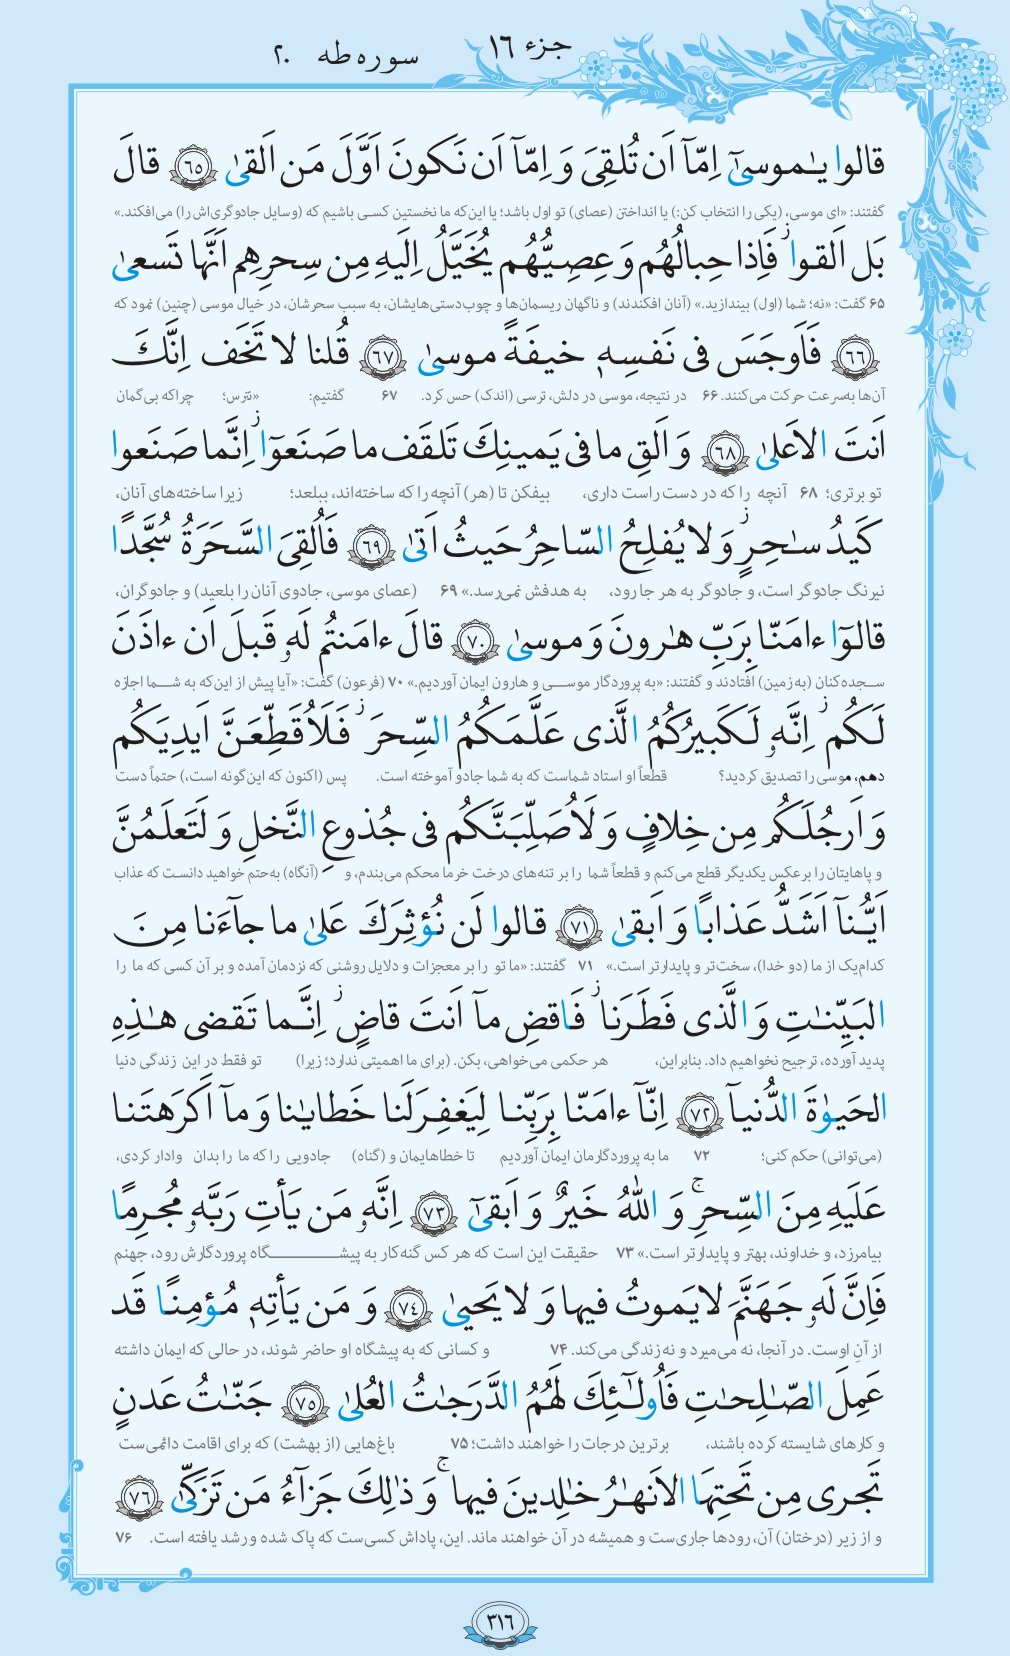 جزء ١٦
سوره طه ٢٠
قالوا يـٰموسىٰٓ اِمّآ اَن تُلقِىَ وَ اِمّآ اَن نَكونَ اَوَّلَ مَن اَلقىٰ ﴿٦٥﴾ قالَ
گفتند: «ای موسی، (یکی را انتخاب کن:) یا انداختن (عصای) تو اول باشد؛ یا این‌که ما نخستین کسی باشیم که (وسایل جادوگری‌اش را) می‌افکند.»
بَل اَلقوا ۖ فَاِذا حِبالُهُم وَ عِصِيُّهُم يُخَيَّلُ اِلَيهِ مِن سِحرِهِم اَنَّها تَسعىٰ
۶۵ گفت: «نه؛ شما (اول) بیندازید.» (آنان افکندند) و ناگهان ریسمان‌ها و چوب‌دستی‌هایشان، به سبب سحرشان، در خیال موسی (چنین) نمود که
﴿٦٦﴾ فَاَوجَسَ فى نَفسِهٖ خيفَةً موسىٰ ﴿٦٧﴾ قُلنا لا تَخَف اِنَّكَ
آن‌ها به‌سرعت حرکت می‌کنند. ۶۶ در نتیجه، موسی در دلش، ترسی (اندک) حس کرد. ۶۷ گفتیم: «نترس؛ چراکه بی‌گمان
اَنتَ الاَعلىٰ ﴿٦٨﴾ وَ اَلقِ ما فى يَمينِكَ تَلقَف ما صَنَعوٓا ۖ اِنَّما صَنَعوا
تو برتری؛ ۶۸ آنچه را که در دست راست داری، بیفکن تا (هر) آنچه را که ساخته‌اند، ببلعد؛ زیرا ساخته‌های آنان،
كَيدُ سـٰحِرٍ ۖ وَ لا يُفلِحُ السّاحِرُ حَيثُ اَتىٰ ﴿٦٩﴾ فَاُلقِىَ السَّحَرَةُ سُجَّدًا
نیرنگ جادوگر است، و جادوگر به هر جا رود، به هدفش نمی‌رسد.» ۶۹ (عصای موسی، جادوی آنان را بلعید) و جادوگران،
قالوٓا ءامَنّا بِرَبِّ هـٰرونَ وَ موسىٰ ﴿٧٠﴾ قالَ ءامَنتُم لَهٗ قَبلَ اَن ءاذَنَ
سجده‌کنان (به زمین) افتادند و گفتند: «به پروردگار موسی و هارون ایمان آوردیم.» ۷۰ (فرعون) گفت: «آیا پیش از این‌که به شما اجازه
لَكُم ۖ اِنَّهٗ لَكَبيرُكُمُ الَّذى عَلَّمَكُمُ السِّحرَ ۖ فَلَاُقَطِّعَنَّ اَيدِيَكُم
دهم، موسی را تصدیق کردید؟ قطعاً او استاد شماست که به شما جادو آموخته است. پس (اکنون که این‌گونه است،) حتماً دست
وَ اَرجُلَكُم مِن خِلافٍ وَ لَاُصَلِّبَنَّكُم فى جُذوعِ النَّخلِ وَ لَتَعلَمُنَّ
و پاهایتان را برعکس یکدیگر قطع می‌کنم و قطعاً شما را بر تنه‌های درخت خرما محکم می‌بندم، و (آنگاه) به‌حتم خواهید دانست که عذاب
اَيُّنآ اَشَدُّ عَذابًا وَ اَبقىٰ ﴿٧١﴾ قالوا لَن نُؤثِرَكَ عَلىٰ ما جآءَنا مِنَ
کدام‌یک از ما (دو خدا)، سخت‌تر و پایدارتر است.» ۷۱ گفتند: «ما تو را بر معجزات و دلایل روشنی که نزدمان آمده و بر آن کسی که ما را
البَيِّنـٰتِ وَ الَّذى فَطَرَنا ۖ فَاقضِ مآ اَنتَ قاضٍ ۖ اِنَّما تَقضى هـٰذِهِ
پدید آورده، ترجیح نخواهیم داد. بنابراین، هر حکمی می‌خواهی، بکن. (برای ما اهمیتی ندارد؛ زیرا) تو فقط در این زندگی دنیا
الحَيوٰةَ الدُّنيآ ﴿٧٢﴾ اِنّآ ءامَنّا بِرَبِّنا لِيَغفِرَ لَنا خَطايـٰنا وَ مآ اَكرَهتَنا
(می‌توانی) حکم کنی؛ ۷۲ ما به پروردگارمان ایمان آوردیم تا خطاهایمان و (گناه) جادویی را که ما را بدان وادار کردی،
عَلَيهِ مِنَ السِّحرِ ۚ وَ اللّٰهُ خَيرٌ وَ اَبقىٰٓ ﴿٧٣﴾ اِنَّهٗ مَن يَأتِ رَبَّهٗ مُجرِمًا
بیامرزد، و خداوند، بهتر و پایدارتر است.» ۷۳ حقیقت این است که هر کس گنه‌کار به پیشگاه پروردگارش رود، جهنم
فَاِنَّ لَهٗ جَهَنَّمَ لا يَموتُ فيها وَ لا يَحيىٰ ﴿٧٤﴾ وَ مَن يَأتِهٖ مُؤمِنًا قَد
از آنِ اوست. در آنجا، نه می‌میرد و نه زندگی می‌کند. ۷۴ و کسانی که به پیشگاه او حاضر شوند، در حالی که ایمان داشته
عَمِلَ الصّـٰلِحـٰتِ فَاُولـٰٓئِكَ لَهُمُ الدَّرَجـٰتُ العُلىٰ ﴿٧٥﴾ جَنّـٰتُ عَدنٍ
و کارهای شایسته کرده باشند، برترین درجات را خواهند داشت؛ ۷۵ باغ‌هایی (از بهشت) که برای اقامت دائمی‌ست
تَجرى مِن تَحتِهَا الاَنهـٰرُ خـٰلِدينَ فيها ۚ وَ ذٰلِكَ جَزآءُ مَن تَزَكّىٰ ﴿٧٦﴾
و از زیر (درختان) آن، رودها جاری‌ست و همیشه در آن خواهند ماند. این، پاداش کسی‌ست که پاک شده و رشد یافته است. ۷۶
٣١٦